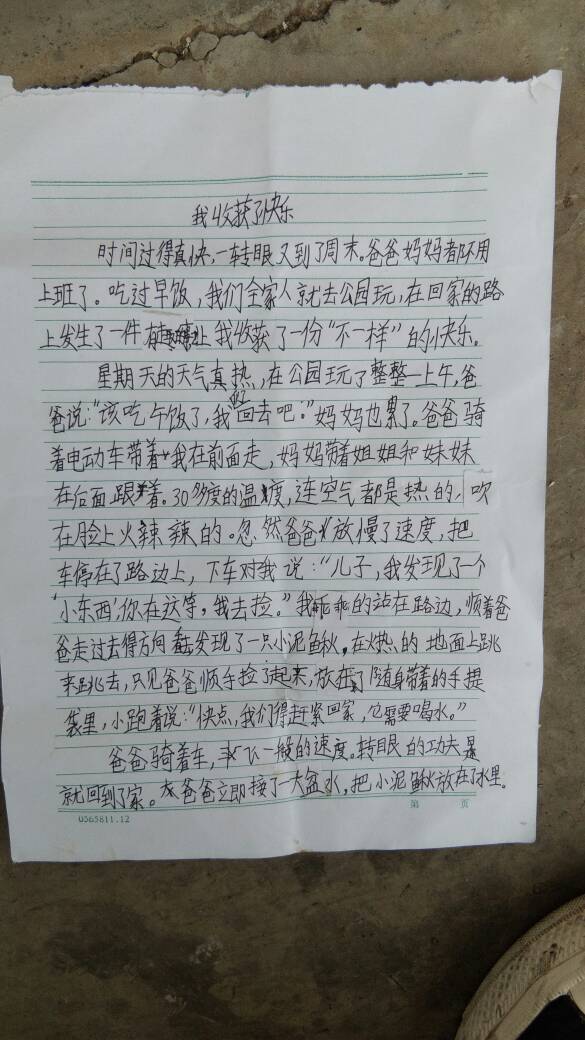 我收获了快乐
时间过得真快，一转眼又到了周末。爸爸妈妈都不用
上班了。吃过早饭，我们全家人就去公园玩，在回家的路
上发生了一件有事让我收获了一份“不一样”的快乐。
星期天的天气真热，在公园玩了整整一上午，爸
爸说：“该吃午饭了，我们回去吧。”妈妈也累了。爸爸骑
着电动车带着我在前面走，妈妈带着姐姐和妹妹
在后面跟着。30多度的温度，连空气都是热的，吹
在脸上火辣辣的。忽然爸爸放慢了速度，把
车停在了路边上，下车对我说：“儿子，我发现了一个
‘小东西’，你在这等，我去捡。”我乖乖的站在路边，顺着爸
爸走过去得方向看去发现了一只小泥鳅，在火热的地面上跳
来跳去，只见爸爸顺手捡了起来，放在了随身带着的手提
袋里，小跑着说：“快点，我们得赶紧回家，它需要喝水。”
爸爸骑着车，飞一般的速度。转眼的功夫
就回到了家。爸爸立即接了一大盆水，把小泥鳅放在了水里。
0565811.12
第 页